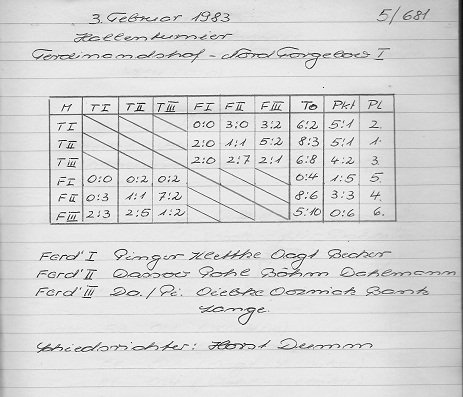 3. Februar 1983 5/681
Hallenturnier
Ferdinandshof - Nord Torgelow I
H TI TII TIII FI FII FIII To Pkt Pl
TI 0:0 3:0 3:2 6:2 5:1 2.
TII 2:0 1:1 5:2 8:3 5:1 1.
TIII 2:0 2:7 2:1 6:8 4:2 3.
FI 0:0 0:2 0:2 0:4 1:5 5.
FII 0:3 1:1 7:2 8:6 3:3 4.
FIII 2:3 2:5 1:2 5:10 0:6 6.
Ferd' I Pinger Klettke Vagt Becker
Ferd' II Pohl Böhm Dahlmann
Ferd' III Da./Pi. Bank
Lange.
Schiedsrichter: Horst Dumm